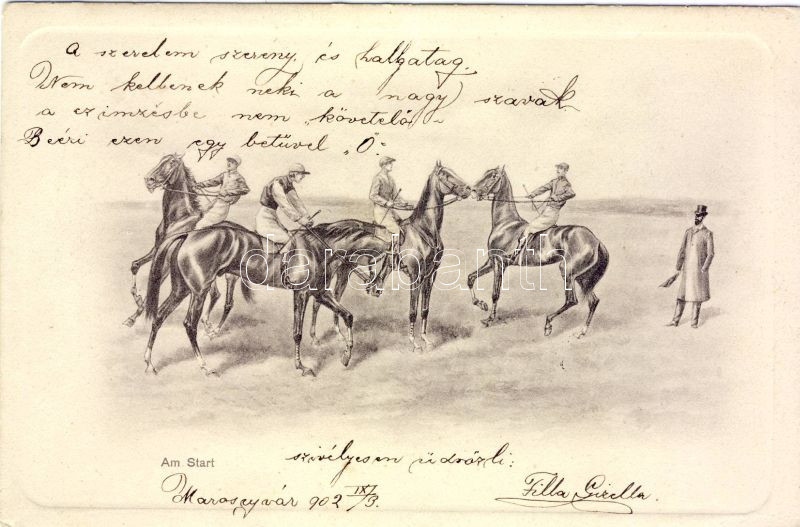 A szerelem szerény, és hallgatag.
Nem kellenek neki a nagy szavak
a czimzésbe nem "követelő -
Beéri ezen egy betűvel "Ő".
darabanth
Am Start
szivélyesen üdvözli:
Marosujvár 902 IX/3.
Filla Gizella.